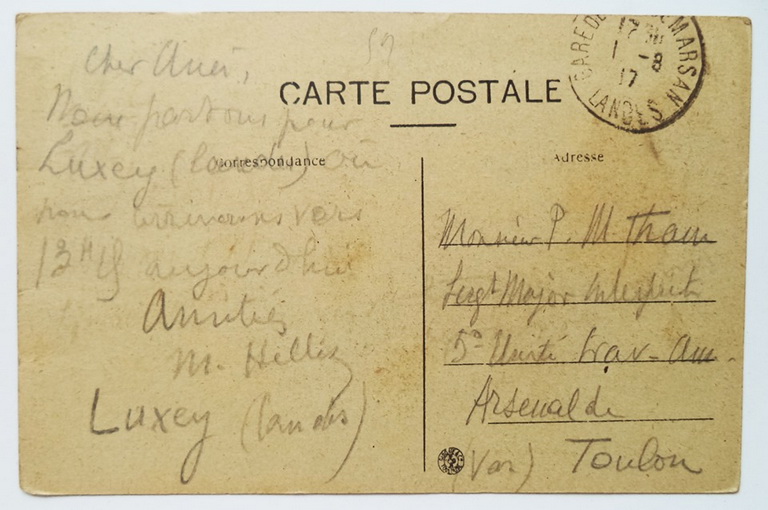 52
Cher Ami,
CARTE POSTALE
Nous partons pour
Luxey (Landes) où
Correspondance
nous arriverons vers
13H 15 aujourd'hui
Amitiés
M. Hellis
Luxey (Landes)
GARE DE MARSAN
1 -8
17
LANDES
Adresse
Monsieur P. M. Tham
Sergt Major Interprète
5e Unité trav- Am.
Arsenal de
(Var) Toulon